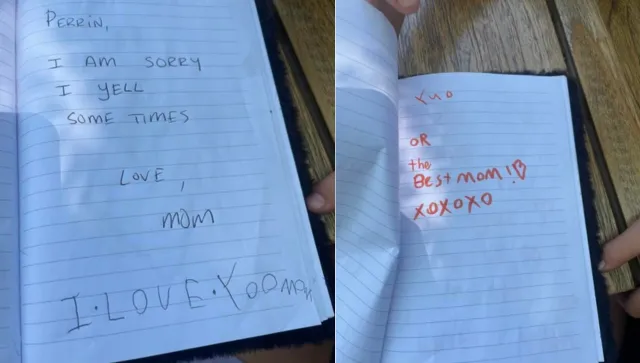 PERRIN,
I AM SORRY
I YELL
SOME TIMES
LOVE,
MOM
I.LOVE.YOOMOM
YUO
OR
the
BEst mom!♡
XOXOXO